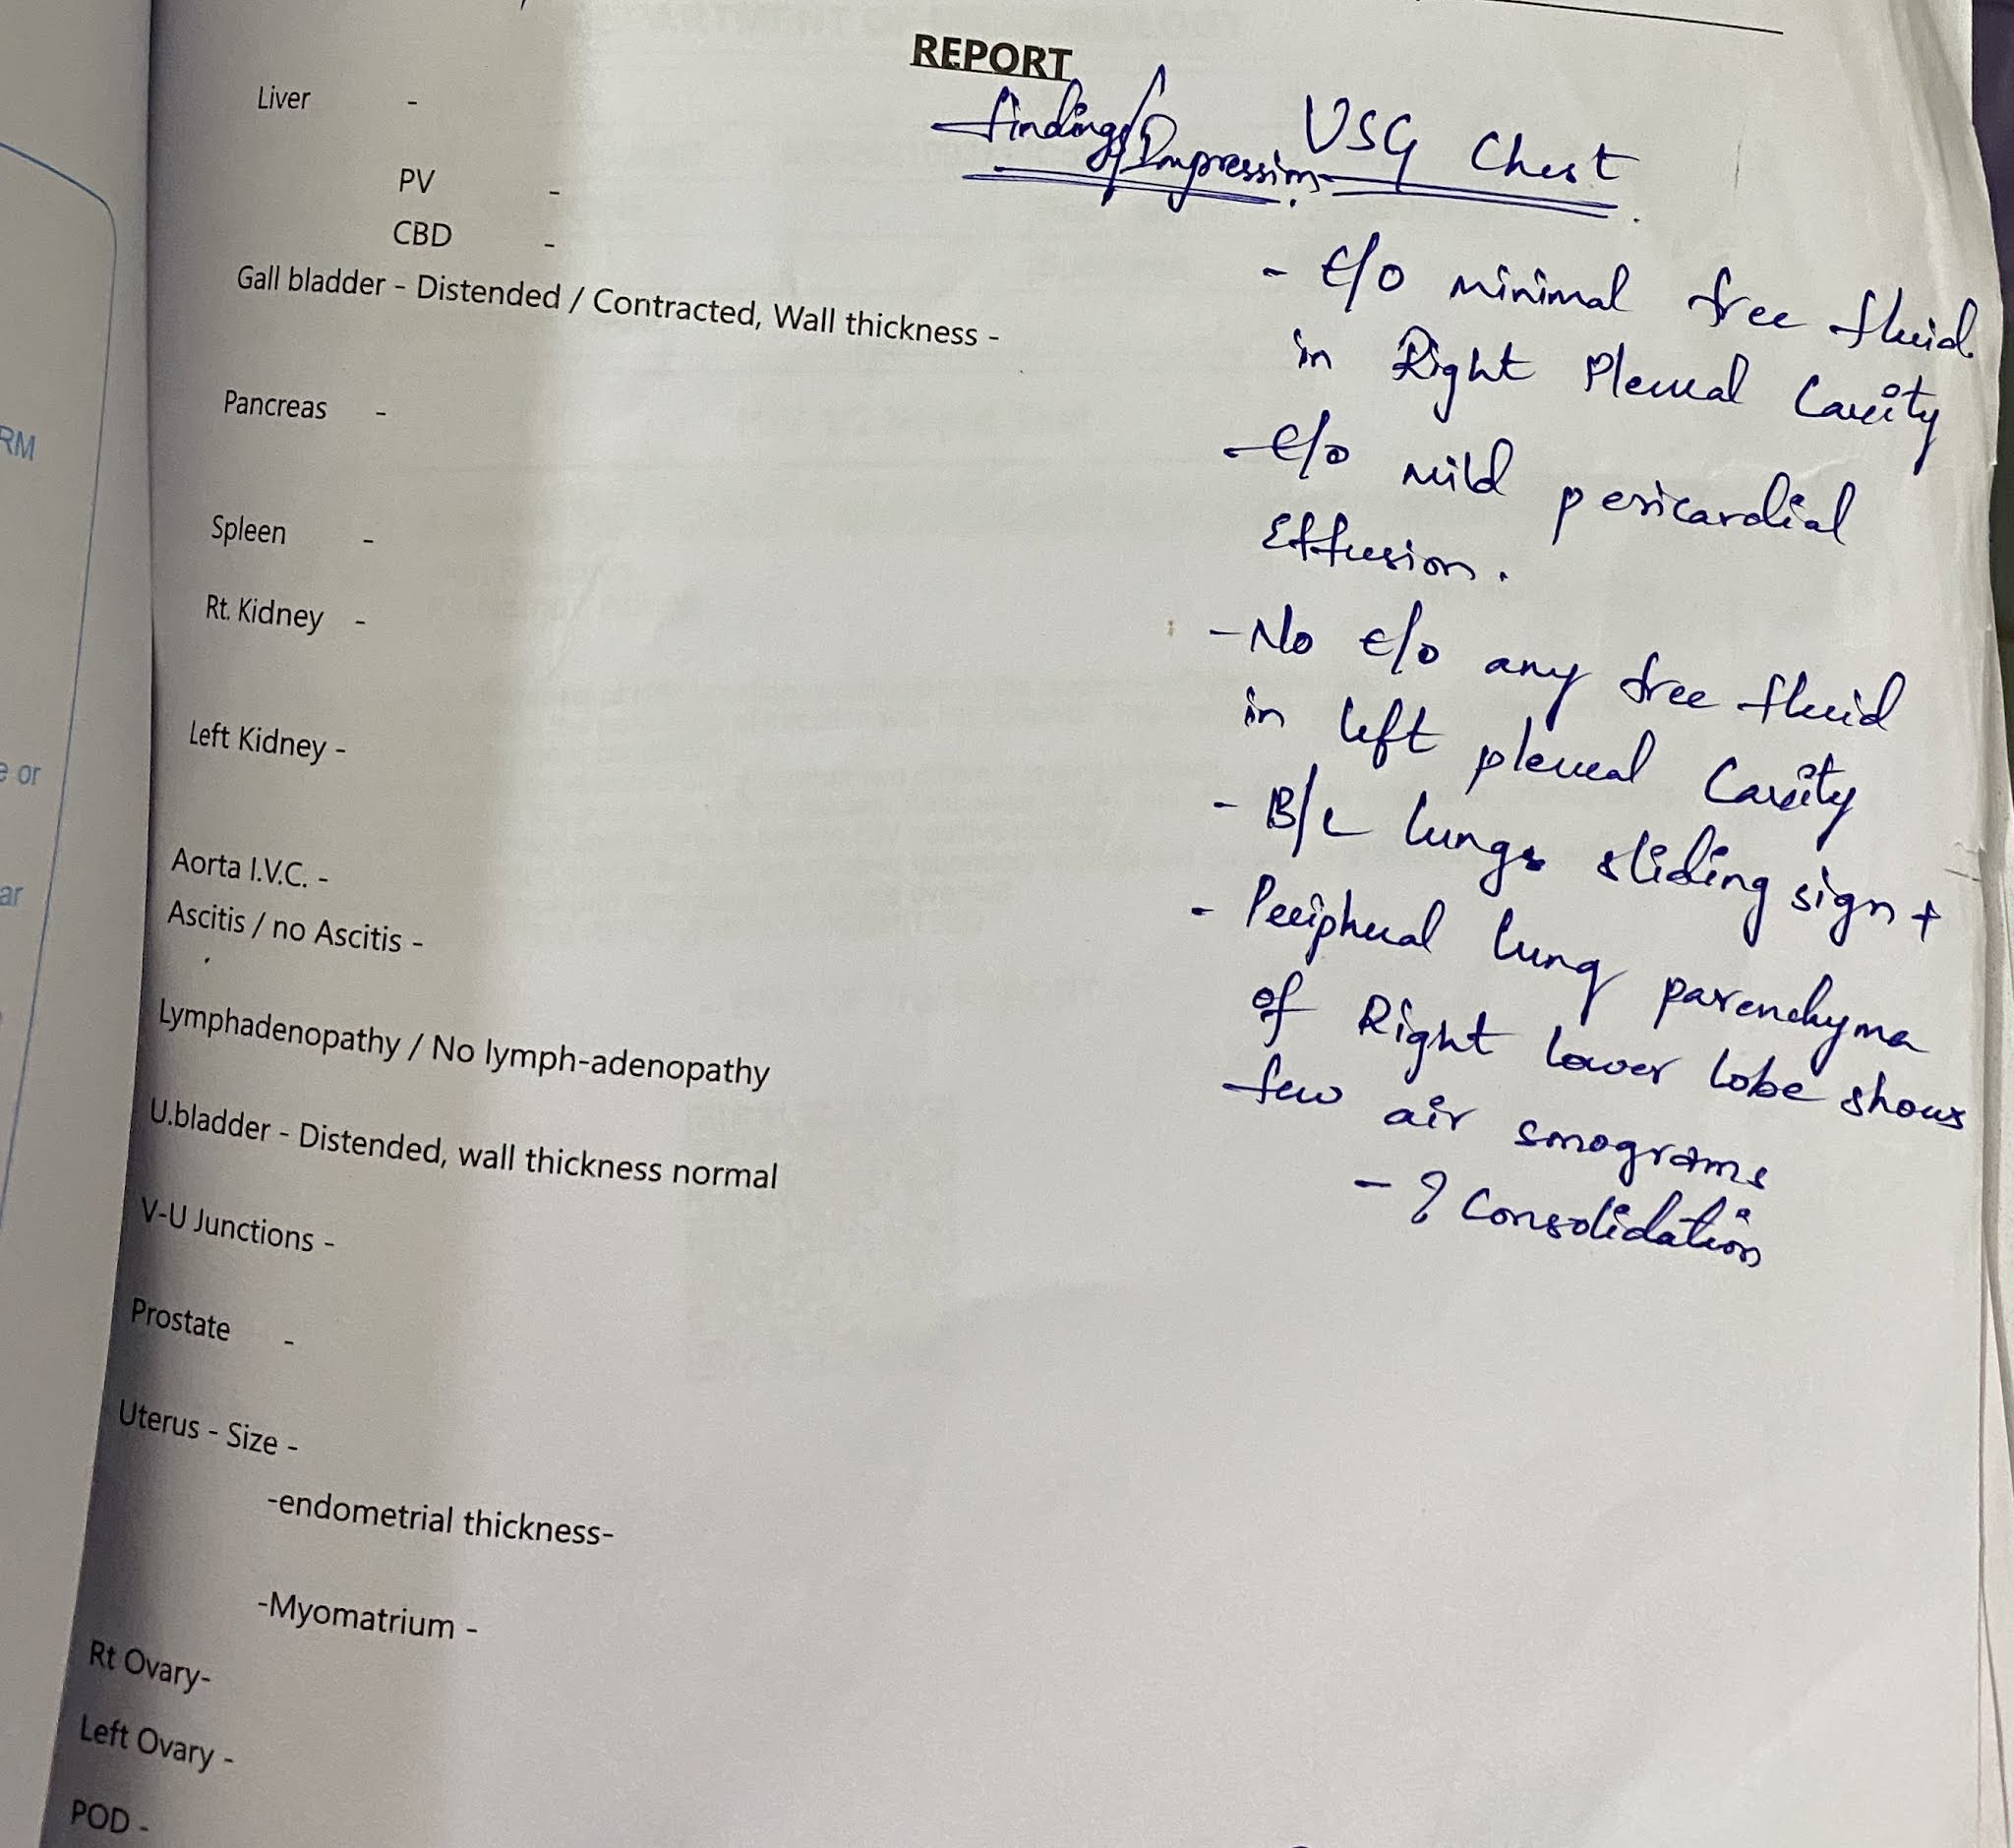 REPORT
Findings/Impression. USG Chest.
Liver -
PV -
CBD -
Gall bladder - Distended / Contracted, Wall thickness -
Pancreas -
Spleen -
Rt. Kidney -
Left Kidney -
Aorta I.V.C. -
Ascitis / no Ascitis -
Lymphadenopathy / No lymph-adenopathy
U.bladder - Distended, wall thickness normal
V-U Junctions -
Prostate -
Uterus - Size -
-endometrial thickness-
-Myomatrium -
Rt Ovary-
Left Ovary -
POD -
- E/o minimal free fluid
in Right Pleural Cavity
- E/o mild pericardial
Effusion.
- No E/o any free fluid
in left pleural Cavity
- B/L lungs sliding sign +
- Peripheral lung parenchyma
of Right lower lobe shows
few air sonograms
- ? Consolidation
RM
e or
ar